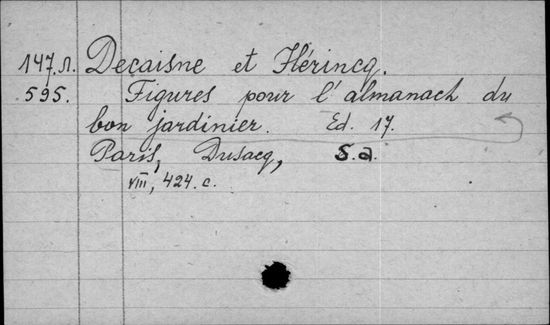 147.Л. Decaisne et Hérincq.
595. Figures pour l'almanach du
bon jardinier. Ed. 17.
Paris, Dusacq, S.a.
VIII, 424 c.